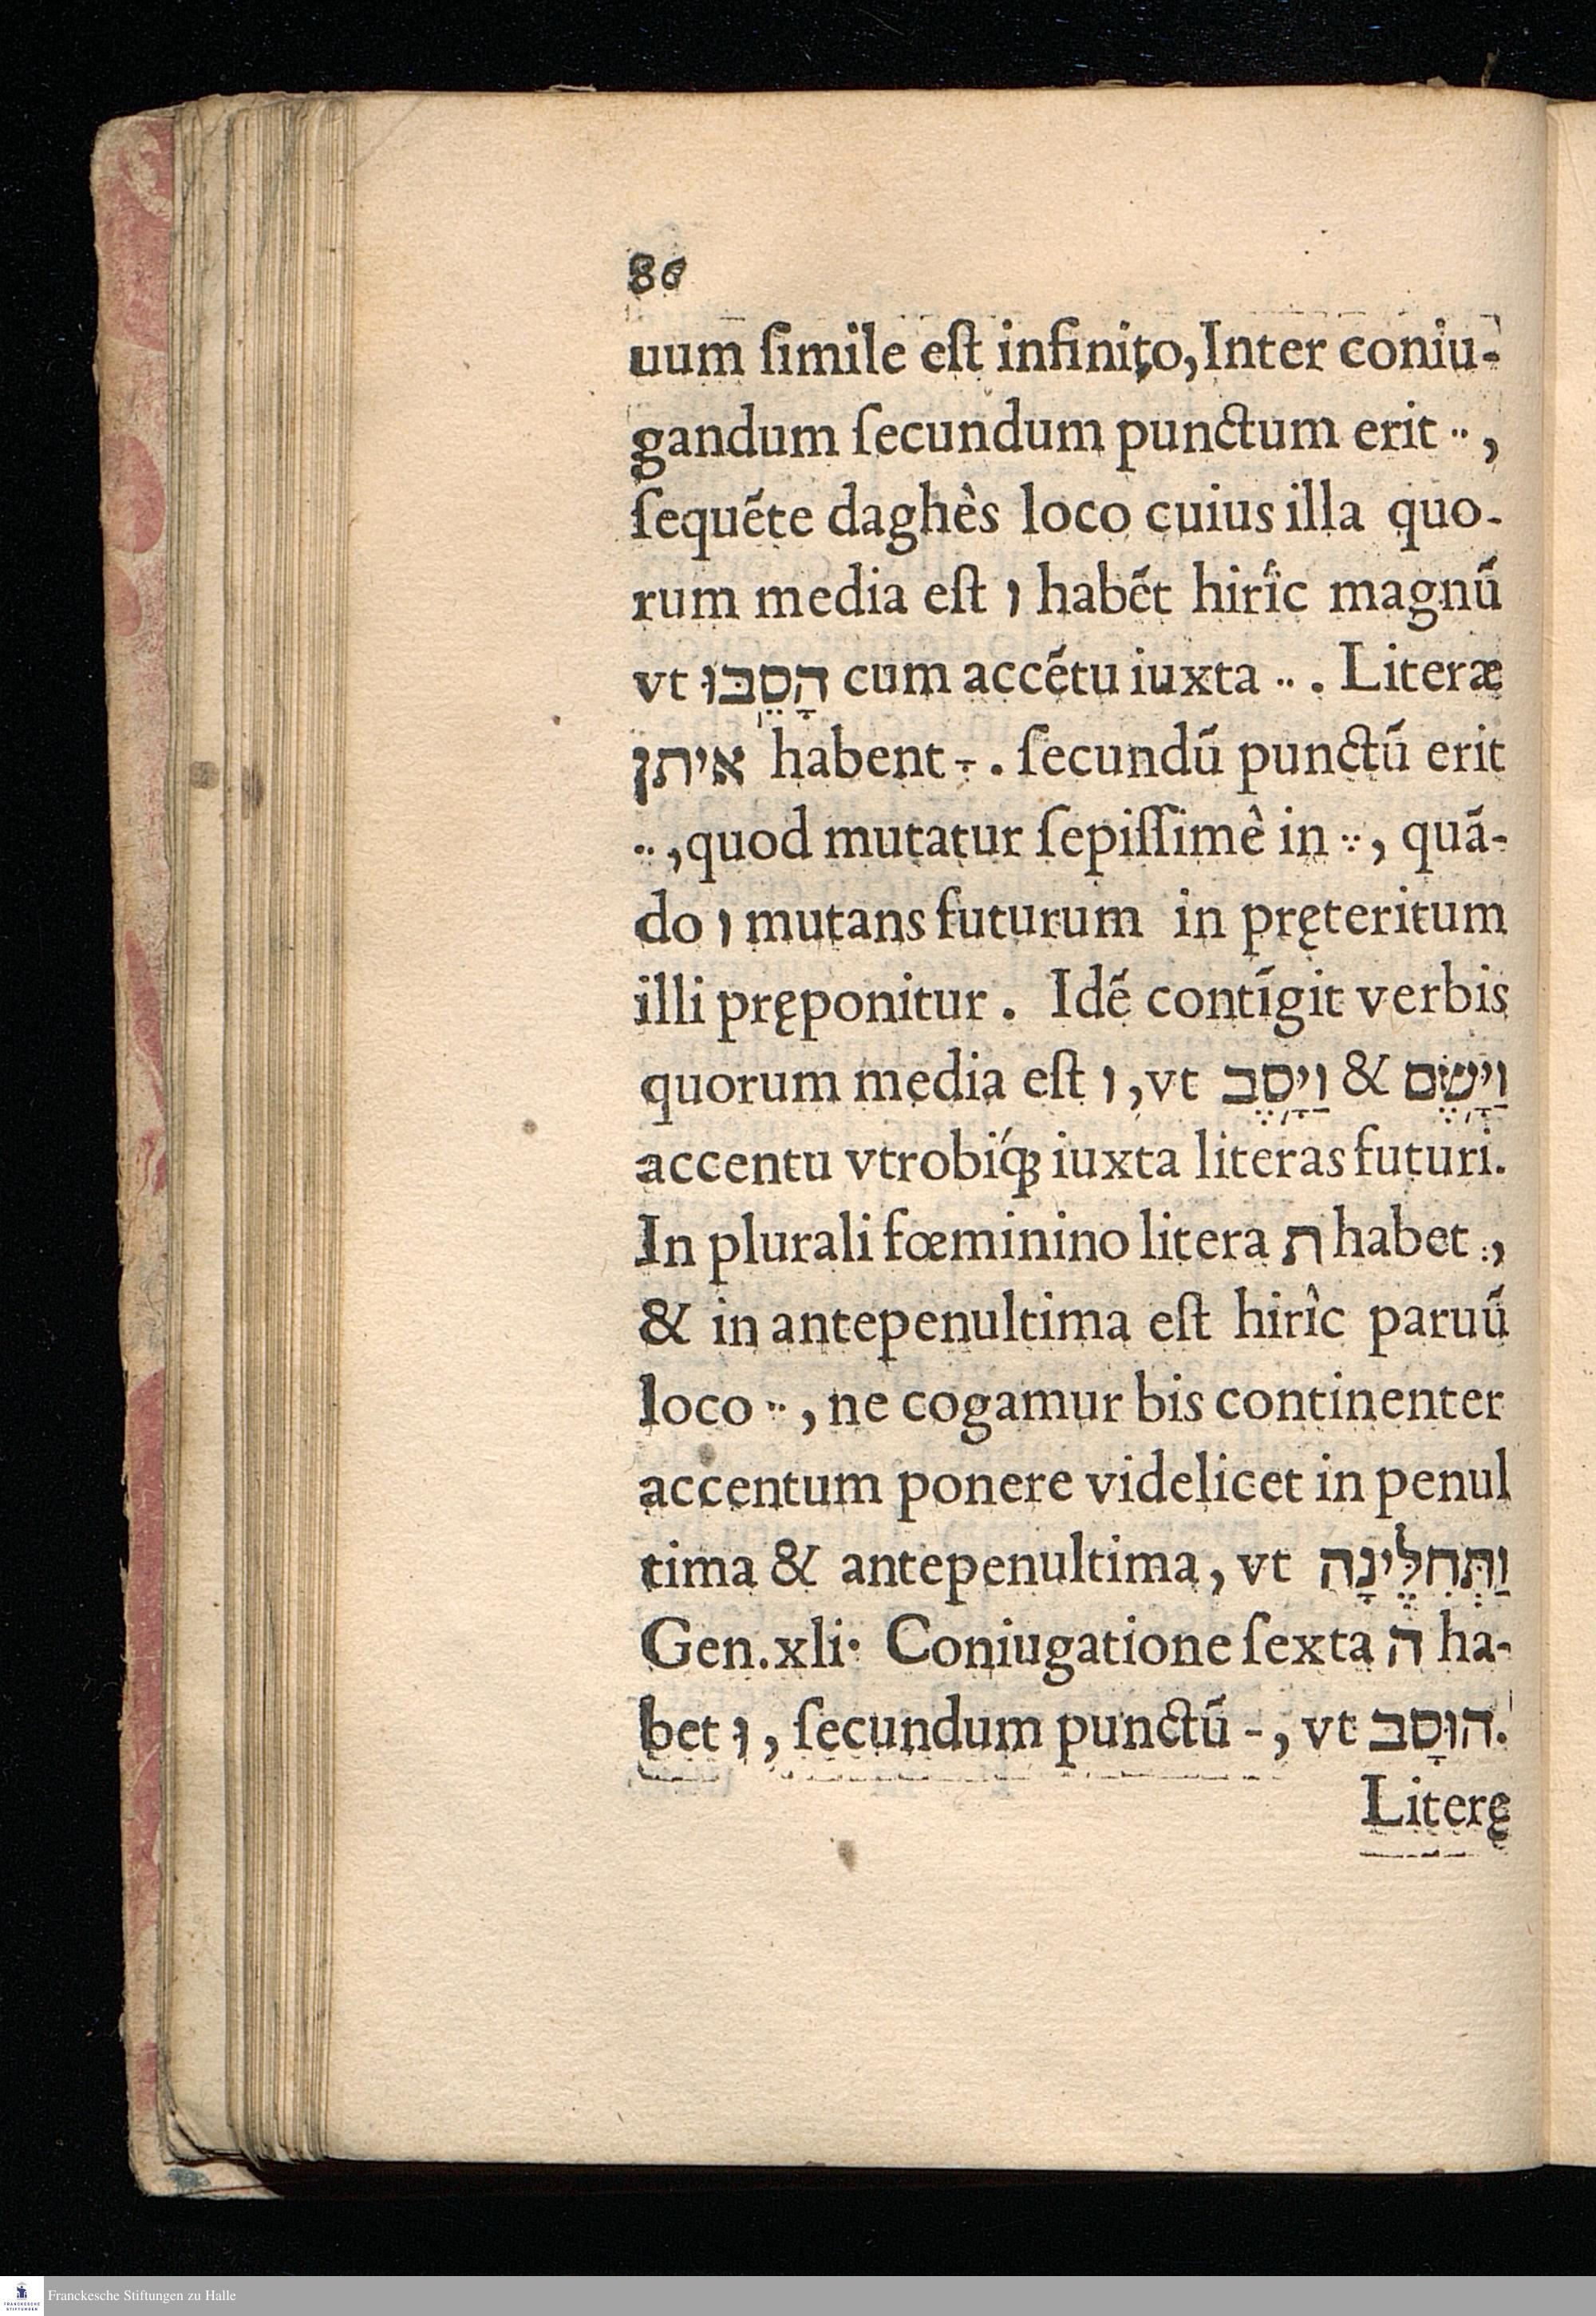 86
uum ſimile eſt infinito,Inter coniu-
gandum ſecundum punctum erit ֵ ,
ſequẽte daghès loco cuius illa quo-
rum media eſt ו habẽt hirîc magnũ
vt הָסֵבּוּ cum accẽtu iuxta ֵ . Literæ
איתן habent ָ . ſecundũ punctũ erit
ֵ ,quod mutatur ſepiſſimè in ֶ , quã-
do ו mutans futurum in pręteritum
illi pręponitur . Idẽ contĩgit verbis
quorum media eſt ו ,vt וַיָּסֶב & וַיָּשֶׂם
accentu vtrobíqꝫ iuxta literas futuri.
In plurali fœminino litera ת habet ְ ,
& in antepenultima eſt hirîc paruũ
loco ֵ , ne cogamur bis continenter
accentum ponere videlicet in penul
tima & antepenultima, vt וַתְּחִלֶּינָה
Gen.xli. Coniugatione ſexta ה ha-
bet וּ , ſecundum punctũ -, vt הוּסָב.
Literę
Franckesche Stiftungen zu Halle